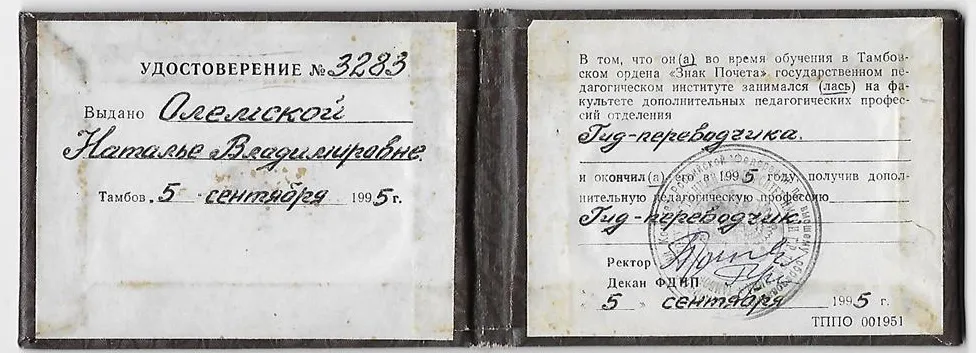 УДОСТОВЕРЕНИЕ № 3283
Выдано Олемской
Наталье Владимировне.
Тамбов. 5 сентября 1995 г.
В том, что он(а) во время обучения в Тамбов-
ском ордена «Знак Почета» государственном пе-
дагогическом институте занимался (лась) на фа-
культете дополнительных педагогических профес-
сий отделения
Гид-переводчика.
и окончил(а) его в 1995 году, получив допол-
нительную педагогическую профессию
Гид-переводчик.
Ректор
Декан ФДПП
5 сентября 1995 г.
ТППО 001951